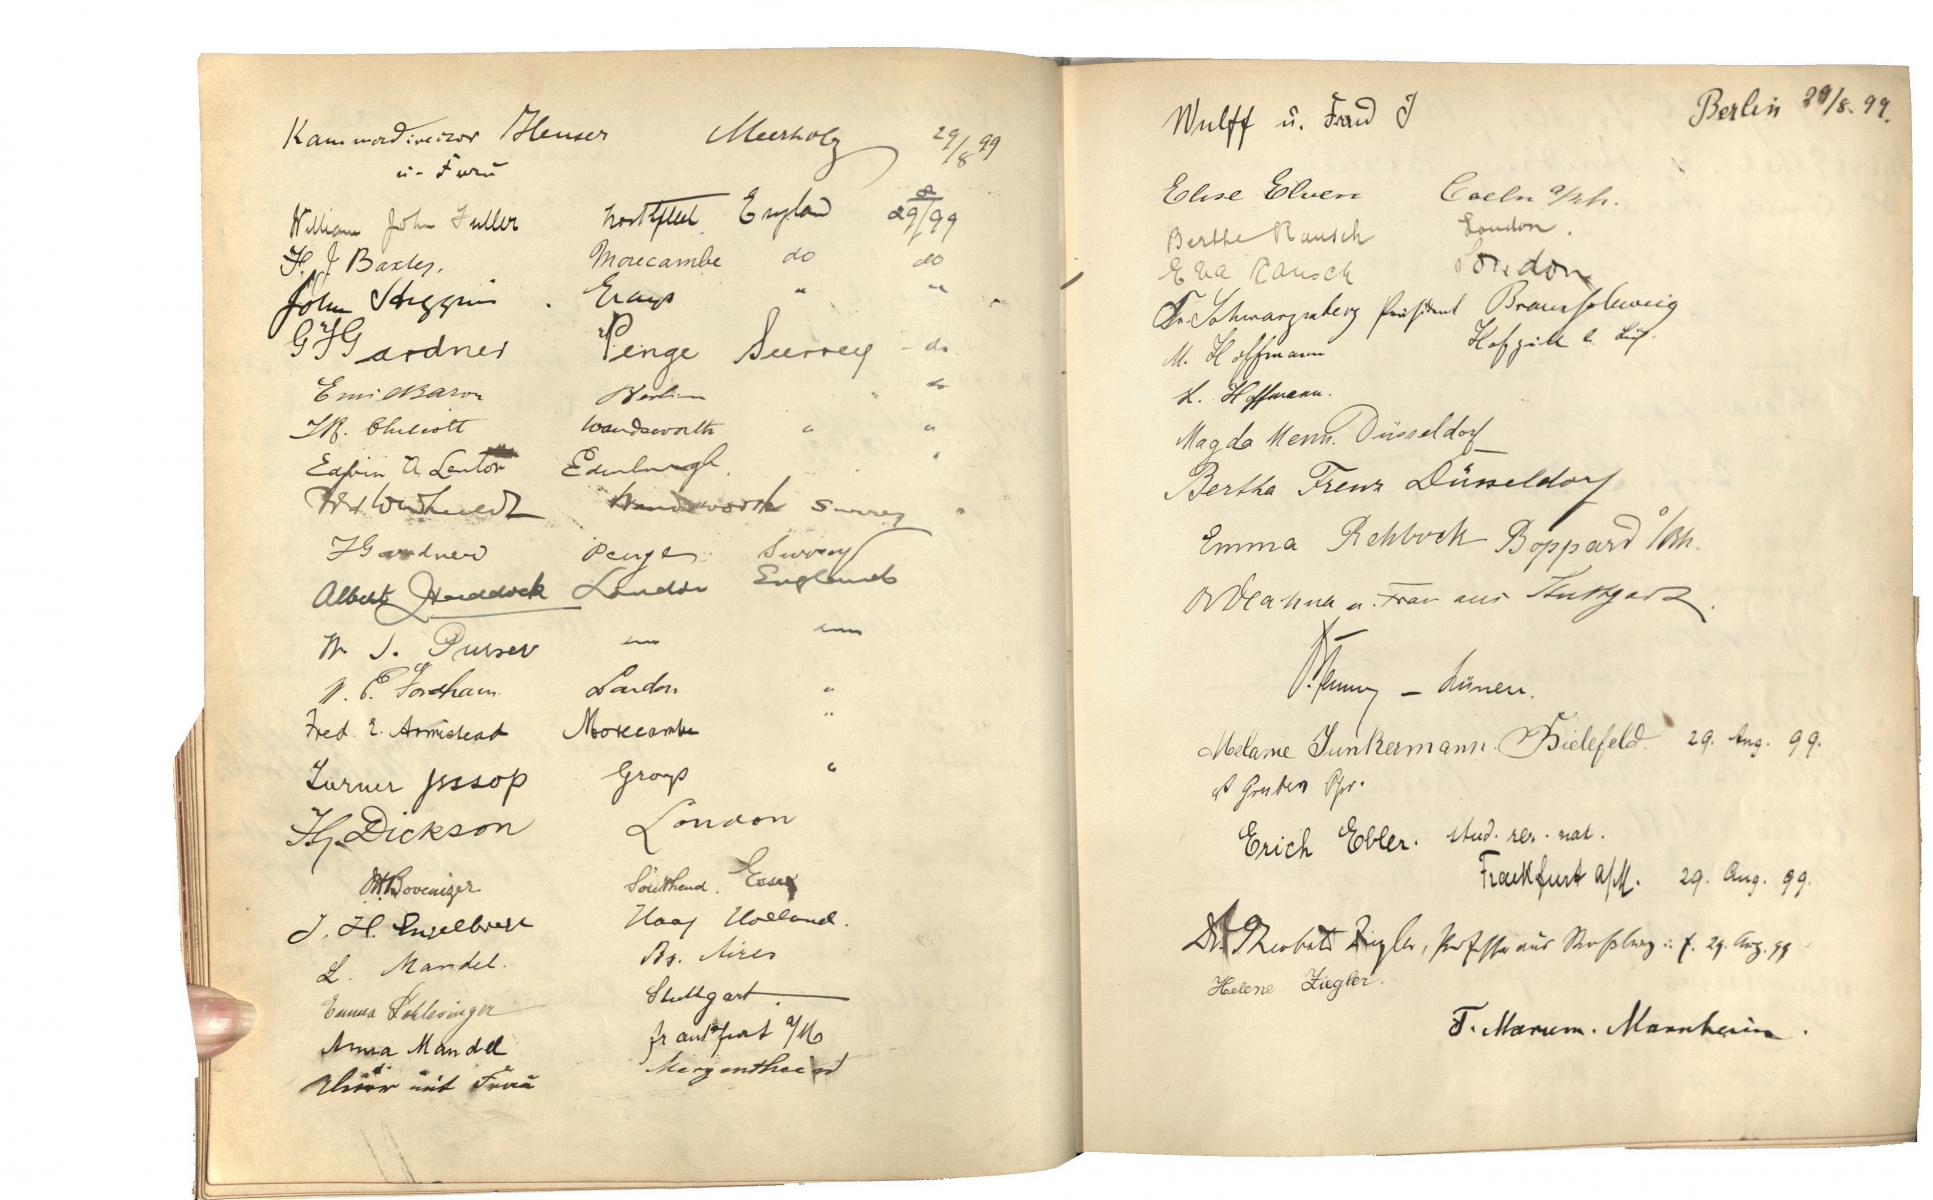 Kammerdirector Heuser Meerholz 29/8 99
u. Frau
William John Fuller Northfleet England 8 29/99
H. J. Baxter, Morecambe do do
John Higgins Grays " "
G F Gardner Penge Surrey - do
Emil Baron Berlin " do
Chilcott Wandsworth " "
Edwin A Lenton Edinburgh "
Wandsworth Surrey "
F Gardner Penge Surrey
Albert Haddock London England
W. J. Purser
W. E. Fordham London "
Fred. E. Armistead Morecambe "
Turner Jessop Grays "
Hy. Dickson London
Bovenizer Southend. Essex
J. H. Engelbregt Haag Holland.
L. Mandel. Bs. Aires
Emma Schlesinger Stuttgart
Anna Mandel Frankfurt a/M
mit Frau Mergentheim
Wulff u. Frau Berlin 29/8. 99.
Elise Elven Coeln a/Rh.
Berthe Rausch London.
Eva Rausch London
Schwarzenberg Präsident Braunschweig
M. Hoffmann
L. Hoffmann.
Magda Menn. Düsseldorf
Bertha Frenz Düsseldorf
Emma Rehbock Boppard a/Rh.
u. Frau aus Stuttgart.
– Lünen.
Melanie Junkermann. Bielefeld. 29. Aug. 99.
Gruber Pfr.
Erich Ebler. stud. rer. nat.
Frankfurt a/M. 29. Aug. 99.
Dr. Theobald Ziegler, Professor aus Straßburg i. E. 29. Aug. 99
Helene Ziegler.
F. Marum. Mannheim.